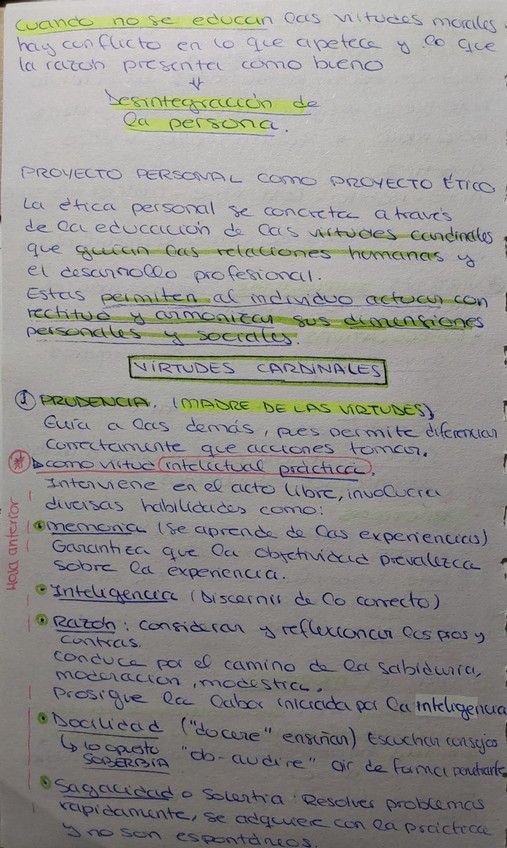 cuando no se educan las virtudes morales
hay conflicto en lo que apetece y lo que
la razón presenta como bueno
↓
Desintegración de
la persona.
PROYECTO PERSONAL COMO PROYECTO ÉTICO
La ética personal se concreta a través
de la educación de las virtudes cardinales
que guían las relaciones humanas y
el desarrollo profesional.
Estas permiten al individuo actuar con
rectitud y armonizar sus dimensiones
personales y sociales.
VIRTUDES CARDINALES
① PRUDENCIA. (MADRE DE LAS VIRTUDES)
Guía a las demás, pues permite diferenciar
correctamente que acciones tomar.
* como virtud intelectual práctica.
Interviene en el acto libre, involucra
diversas habilidades como:
• memoria (se aprende de las experiencias)
Garantiza que la objetividad prevalezca
sobre la experiencia.
• Inteligencia (Discernir de lo correcto)
• Razón: considerar y reflexionar los pros y
contras.
conduce por el camino de la sabiduría,
moderación, modestia.
Prosigue la labor iniciada por la inteligencia
• Docilidad ("docere" enseñar) Escuchar consejos
↳ lo opuesto "ob-audire" oir de forma
SOBERBIA
• Sagacidad o Solertia: Resolver problemas
rapidamente, se adquiere con la práctica
y no son espontáneos.
Hoja anterior